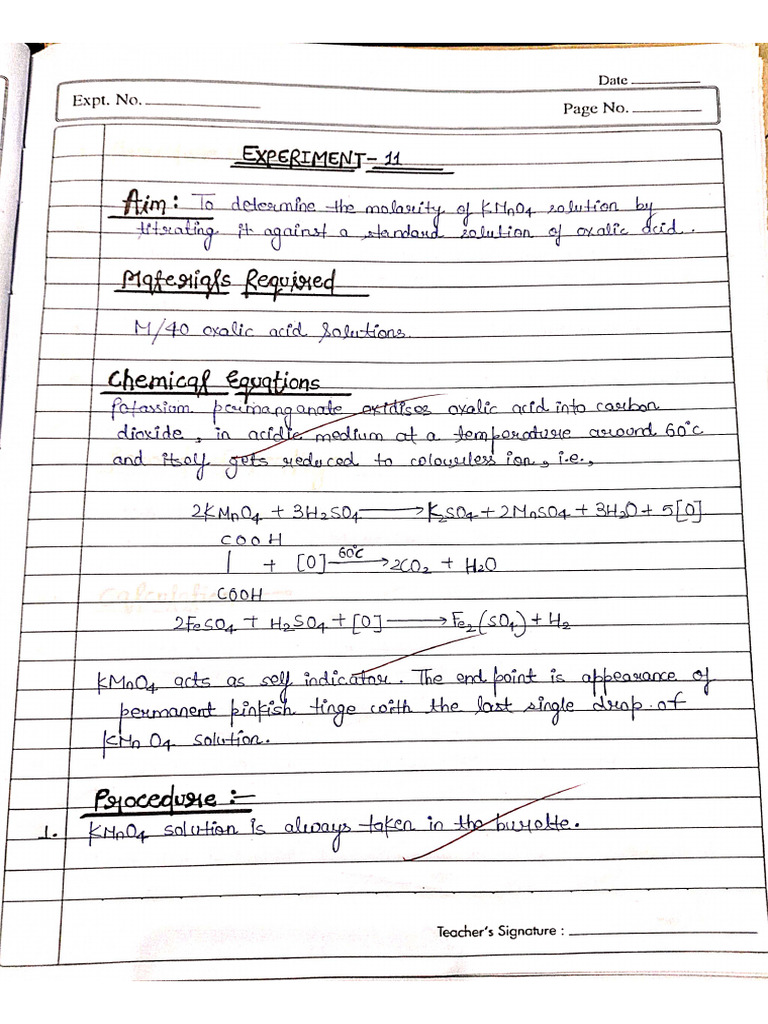 Date
Expt. No.
Page No.
EXPERIMENT- 11
Aim: To determine the molarity of KMnO4 solution by
titrating it against a standard solution of oxalic acid.
Materials Required
M/40 oxalic acid solutions.
Chemical Equations
Potassium permanganate oxidises oxalic acid into carbon
dioxide, in acidic medium at a temperature around 60°C
and itself gets reduced to colourless ion, i.e.,
2KMnO4 + 3H2SO4 ⟶ K2SO4 + 2MnSO4 + 3H2O + 5[O]
COOH
| + [O] 60°C ⟶ 2CO2 + H2O
COOH
2FeSO4 + H2SO4 + [O] ⟶ Fe2(SO4) + H2
KMnO4 acts as self indicator. The end point is appearance of
permanent pinkish tinge with the last single drop of
KMnO4 solution.
Procedure :-
1. KMnO4 solution is always taken in the burette.
Teacher's Signature :